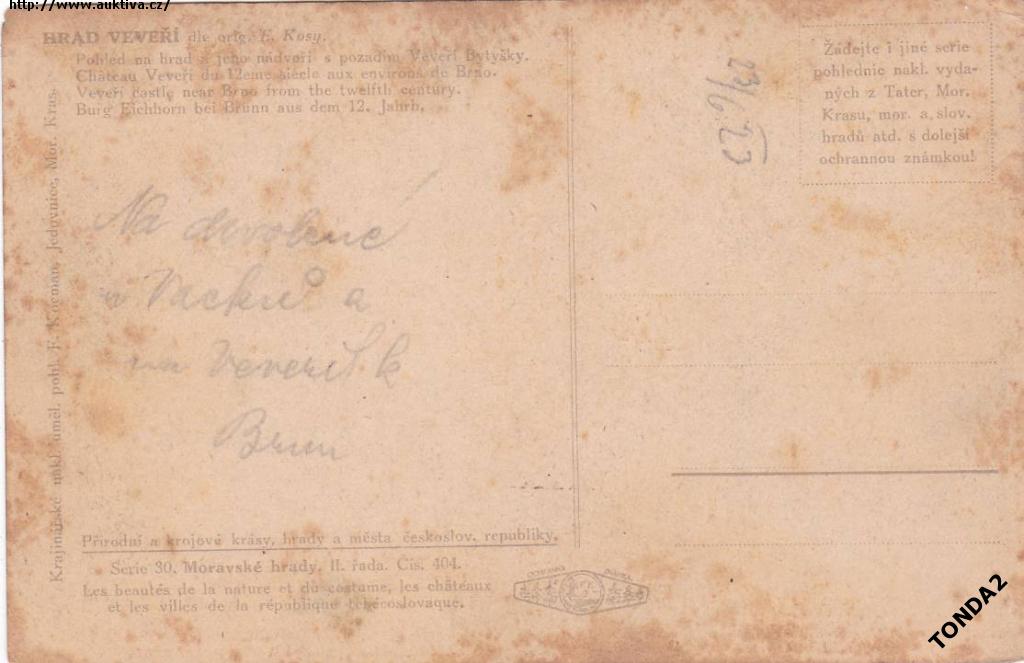 http://www.auktiva.cz/
HRAD VEVEŘÍ dle orig. F. Kosy.
Pohled na hrad a jeho nádvoří s pozadím Veveří Bytyšky.
Château Veveří du 12eme siècle aux environs de Brno.
Veveří castle near Brno from the twelfth century.
Burg Eichhorn bei Brünn aus dem 12. Jahrh.
Krajinářské nakl. uměl. pohl. F. Kocman, Jedovnice, Mor. Kras.
23/6 23
Žádejte i jiné serie
pohlednic nakl. vyda-
ných z Tater, Mor.
Krasu, mor. a slov.
hradů atd. s dolejší
ochrannou známkou!
Na dovolené
u Vacků a
na Veveří k
Brna
Přírodní a krojové krásy, hrady a města českoslov. republiky.
Serie 30. Moravské hrady. II. řada. Čís. 404.
Les beautés de la nature et du costume, les châteaux
et les villes de la république tchécoslovaque.
TONDA2